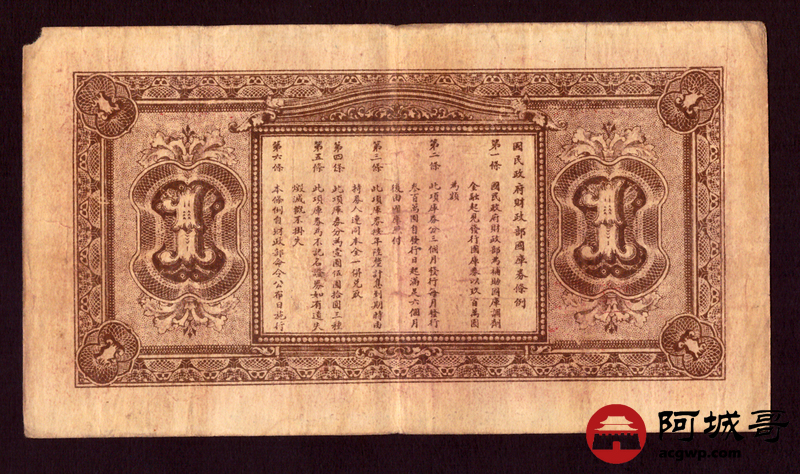 國民政府財政部國庫券條例
第一條 國民政府財政部為補助國庫調劑
金融起見發行國庫券以玖百萬圓
為額
第二條 此項庫券分三個月發行每月發行
叁百萬圓自發行日起滿足六個月
後由國庫照付
第三條 此項庫券按年陸釐計息到期時由
持券人連同本金一併兌取
第四條 此項庫券分為壹圓伍圓拾圓三種
第五條 此項庫券為不記名證券如有遺失
燬滅概不掛失
第六條 本條例自財政部命令公布日施行
1
1
阿城哥
acgwp.com